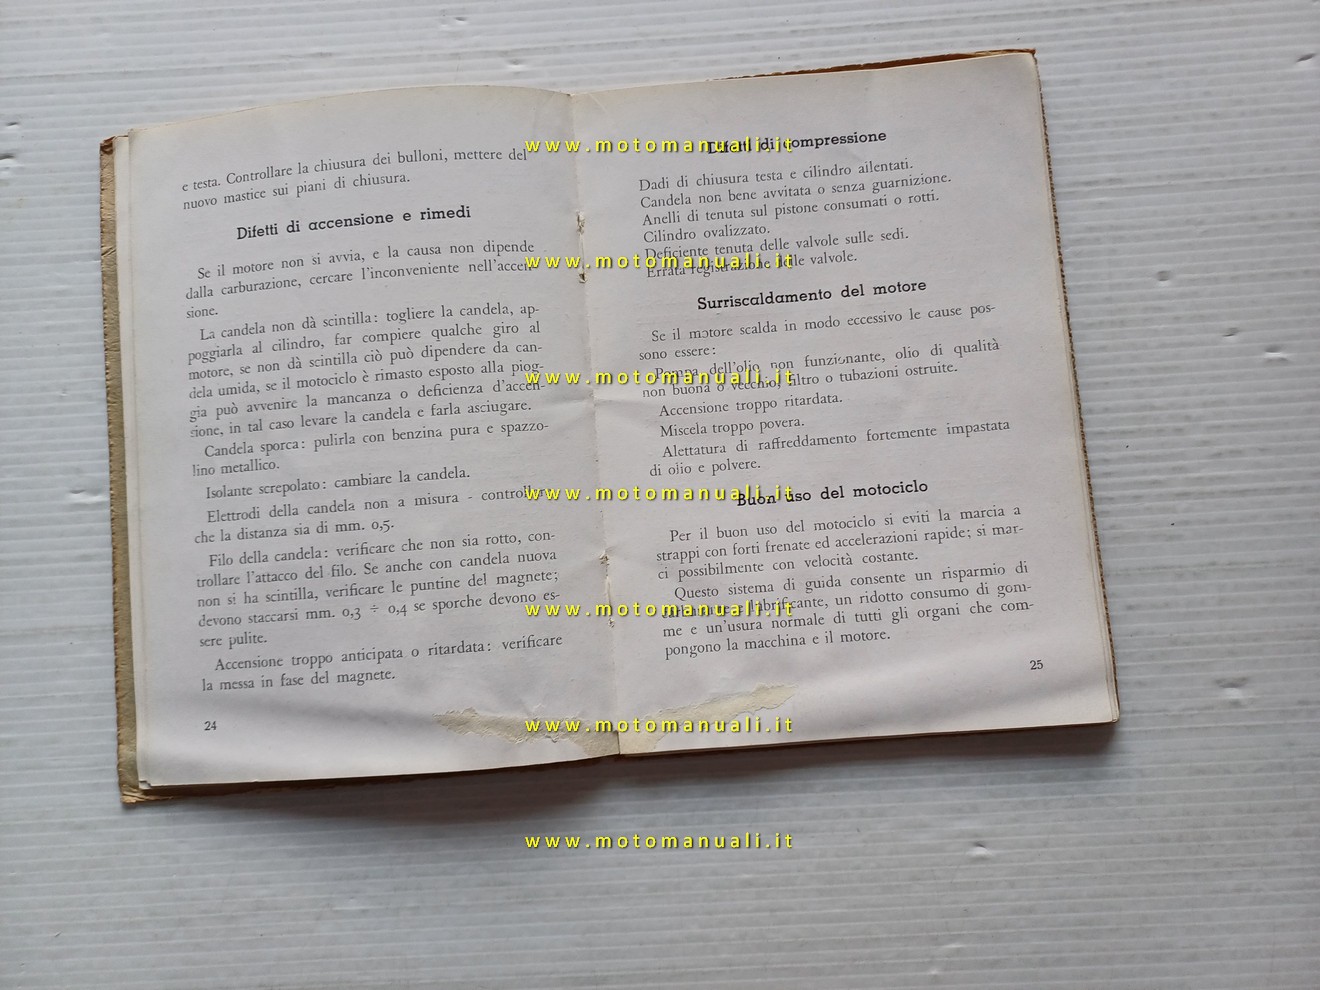 e testa. Controllare la chiusura dei bulloni, mettere del
nuovo mastice sui piani di chiusura.
Difetti di accensione e rimedi
Se il motore non si avvia, e la causa non dipende
dalla carburazione, cercare l'inconveniente nell'accen-
sione.
La candela non dà scintilla: togliere la candela, ap-
poggiarla al cilindro, far compiere qualche giro al
motore, se non dà scintilla ciò può dipendere da can-
dela umida, se il motociclo è rimasto esposto alla piog-
gia può avvenire la mancanza o deficienza d'accen-
sione, in tal caso levare la candela e farla asciugare.
Candela sporca: pulirla con benzina pura e spazzo-
lino metallico.
Isolante screpolato: cambiare la candela.
Elettrodi della candela non a misura - controllare
che la distanza sia di mm. 0,5.
Filo della candela: verificare che non sia rotto, con-
trollare l'attacco del filo. Se anche con candela nuova
non si ha scintilla, verificare le puntine del magnete;
devono staccarsi mm. 0,3 ÷ 0,4 se sporche devono es-
sere pulite.
Accensione troppo anticipata o ritardata: verificare
la messa in fase del magnete.
24
Difetti di compressione
Dadi di chiusura testa e cilindro allentati.
Candela non bene avvitata o senza guarnizione.
Anelli di tenuta sul pistone consumati o rotti.
Cilindro ovalizzato.
Deficiente tenuta delle valvole sulle sedi.
Errata registrazione delle valvole.
Surriscaldamento del motore
Se il motore scalda in modo eccessivo le cause pos-
sono essere:
Pompa dell'olio non funzionante, olio di qualità
non buona o vecchio, filtro o tubazioni ostruite.
Accensione troppo ritardata.
Miscela troppo povera.
Alettatura di raffreddamento fortemente impastata
di olio e polvere.
Buon uso del motociclo
Per il buon uso del motociclo si eviti la marcia a
strappi con forti frenate ed accelerazioni rapide; si mar-
ci possibilmente con velocità costante.
Questo sistema di guida consente un risparmio di
carburante e lubrificante, un ridotto consumo di gom-
me e un'usura normale di tutti gli organi che com-
pongono la macchina e il motore.
25
www.motomanuali.it
www.motomanuali.it
www.motomanuali.it
www.motomanuali.it
www.motomanuali.it
www.motomanuali.it
www.motomanuali.it